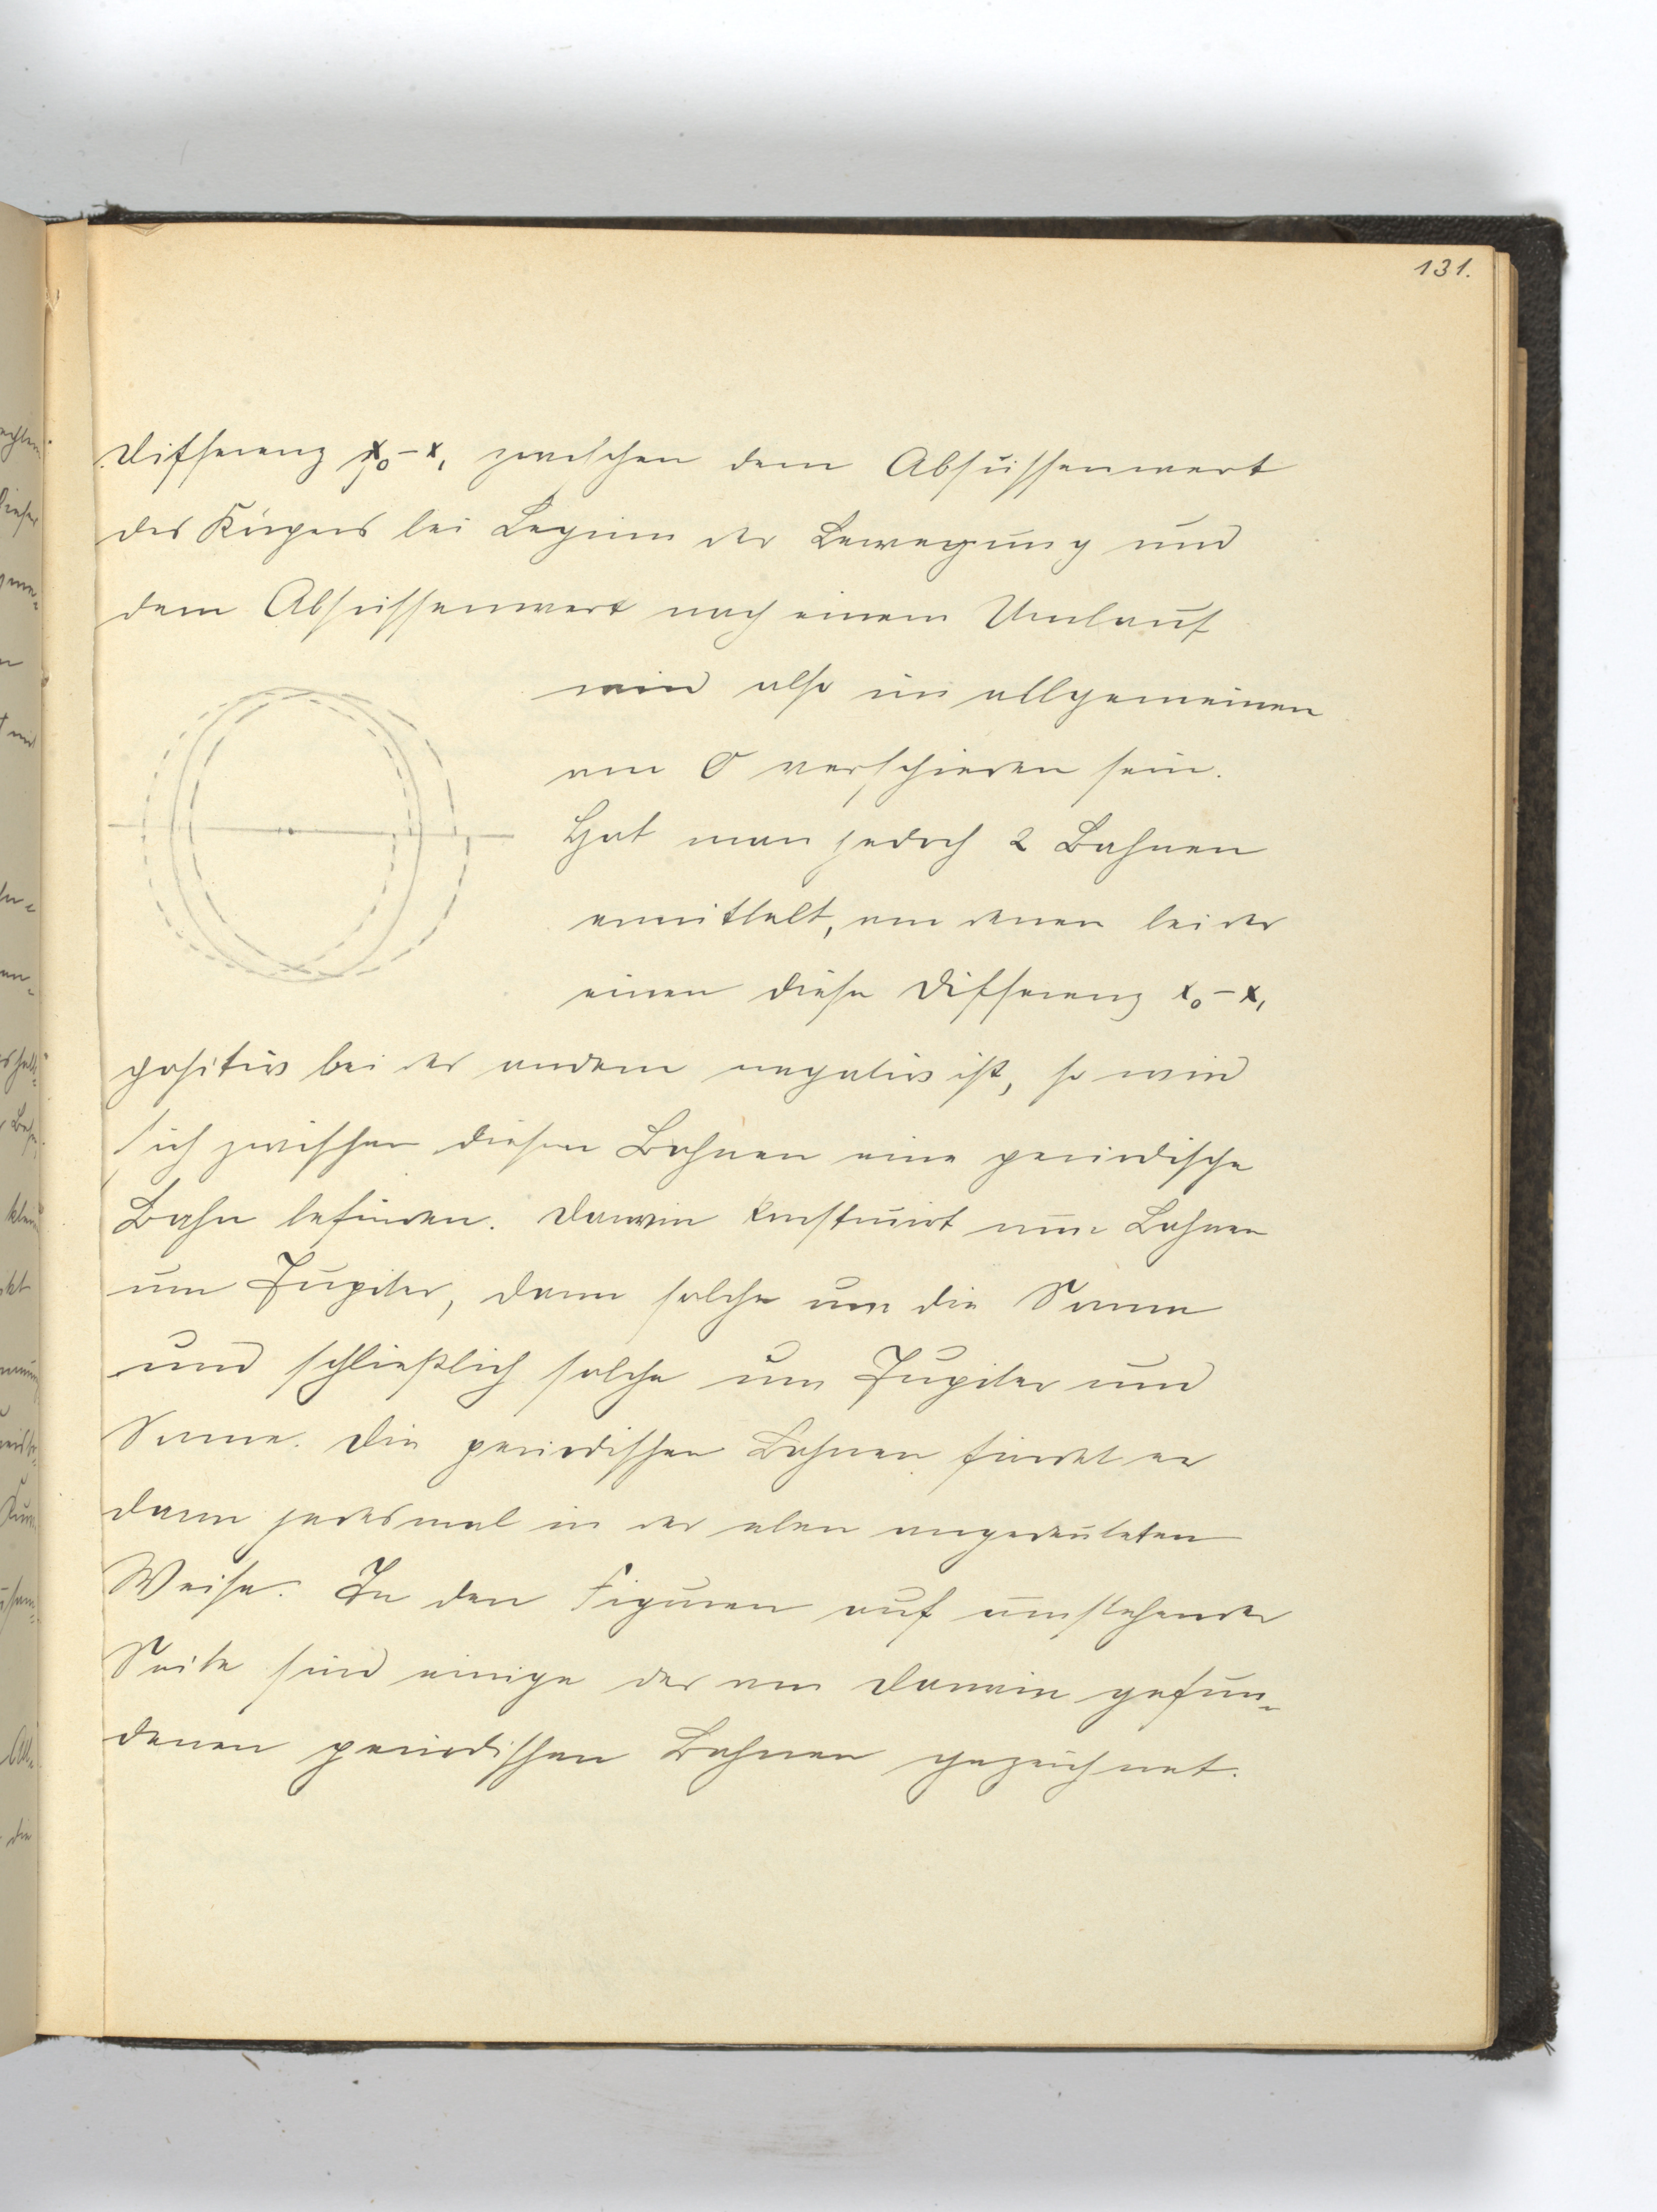 131.
Differenz x₀-x₁ zwischen dem Abszissenwert
des Körpers bei Beginn der Bewegung und
dem Abszissenwert nach einem Umlauf
wird also im allgemeinen
von 0 verschieden sein.
Hat man jedoch 2 Bahnen
ermittelt, von denen bei der
einen diese Differenz x₀-x₁
positiv bei der andern negativ ist, so wird
sich zwischen diesen Bahnen eine periodische
Bahn befinden. Darwin konstruirt nun Bahnen
um Jupiter, dann solche um die Sonne
und schließlich solche um Jupiter und
Sonne. Die periodischen Bahnen findet er
dann jedesmal in der oben angedeuteten
Weise. In den Figuren auf umstehender
Seite sind einige der von Darwin gefun-
denen periodischen Bahnen gezeichnet.